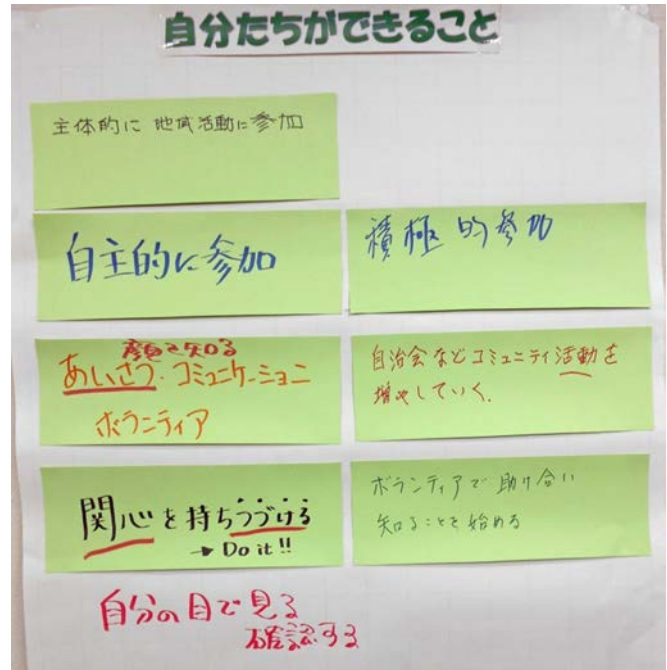 自分たちができること
主体的に 地域活動に参加
自主的に参加
積極的参加
顔を知る
あいさつ・コミュニケーション
ボランティア
自治会などコミュニティ活動を
増やしていく.
関心を持ちつづける
→ Do it!!
ボランティアで助け合い
知ることを始める
自分の目で見る
確認する